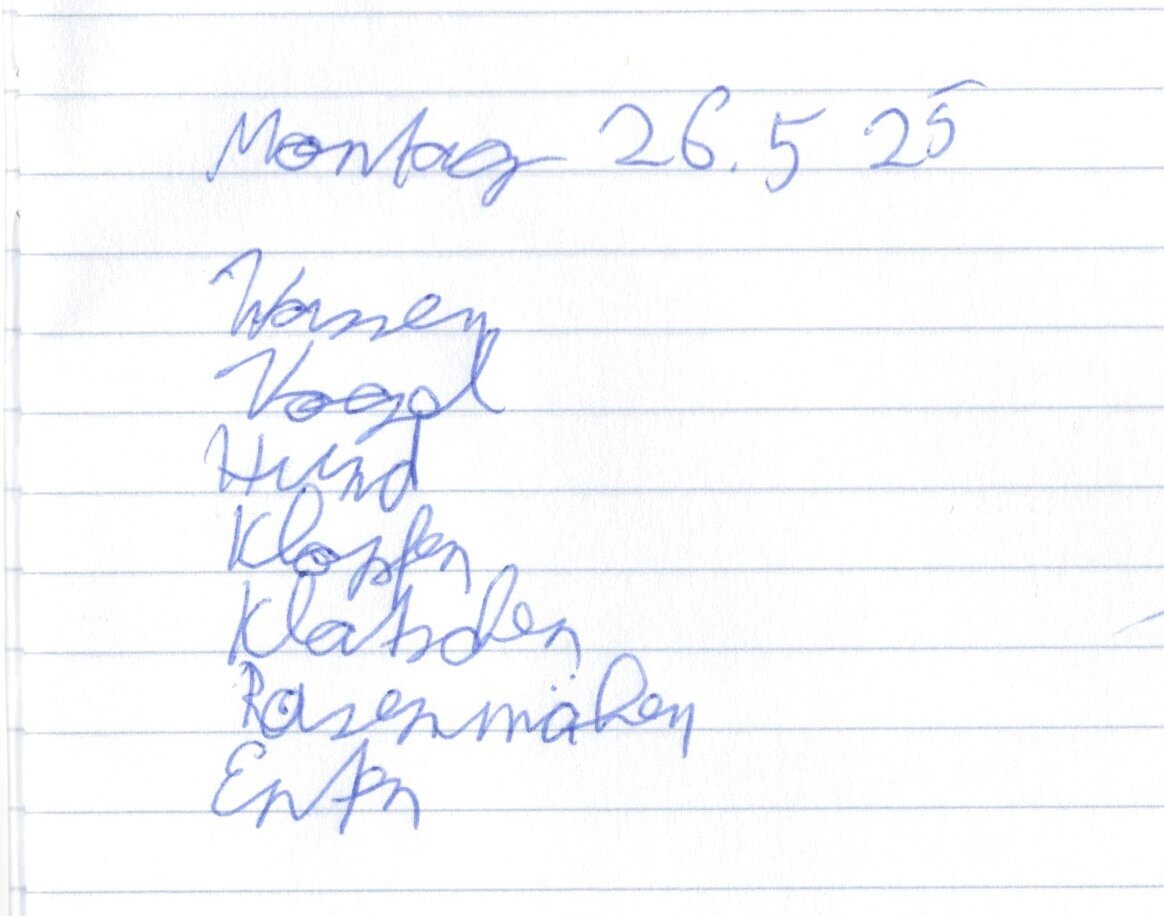 Montag 26.5 25
Wasser
Vogel
Hund
Klopfen
Klatschen
Rasenmäher
Enten